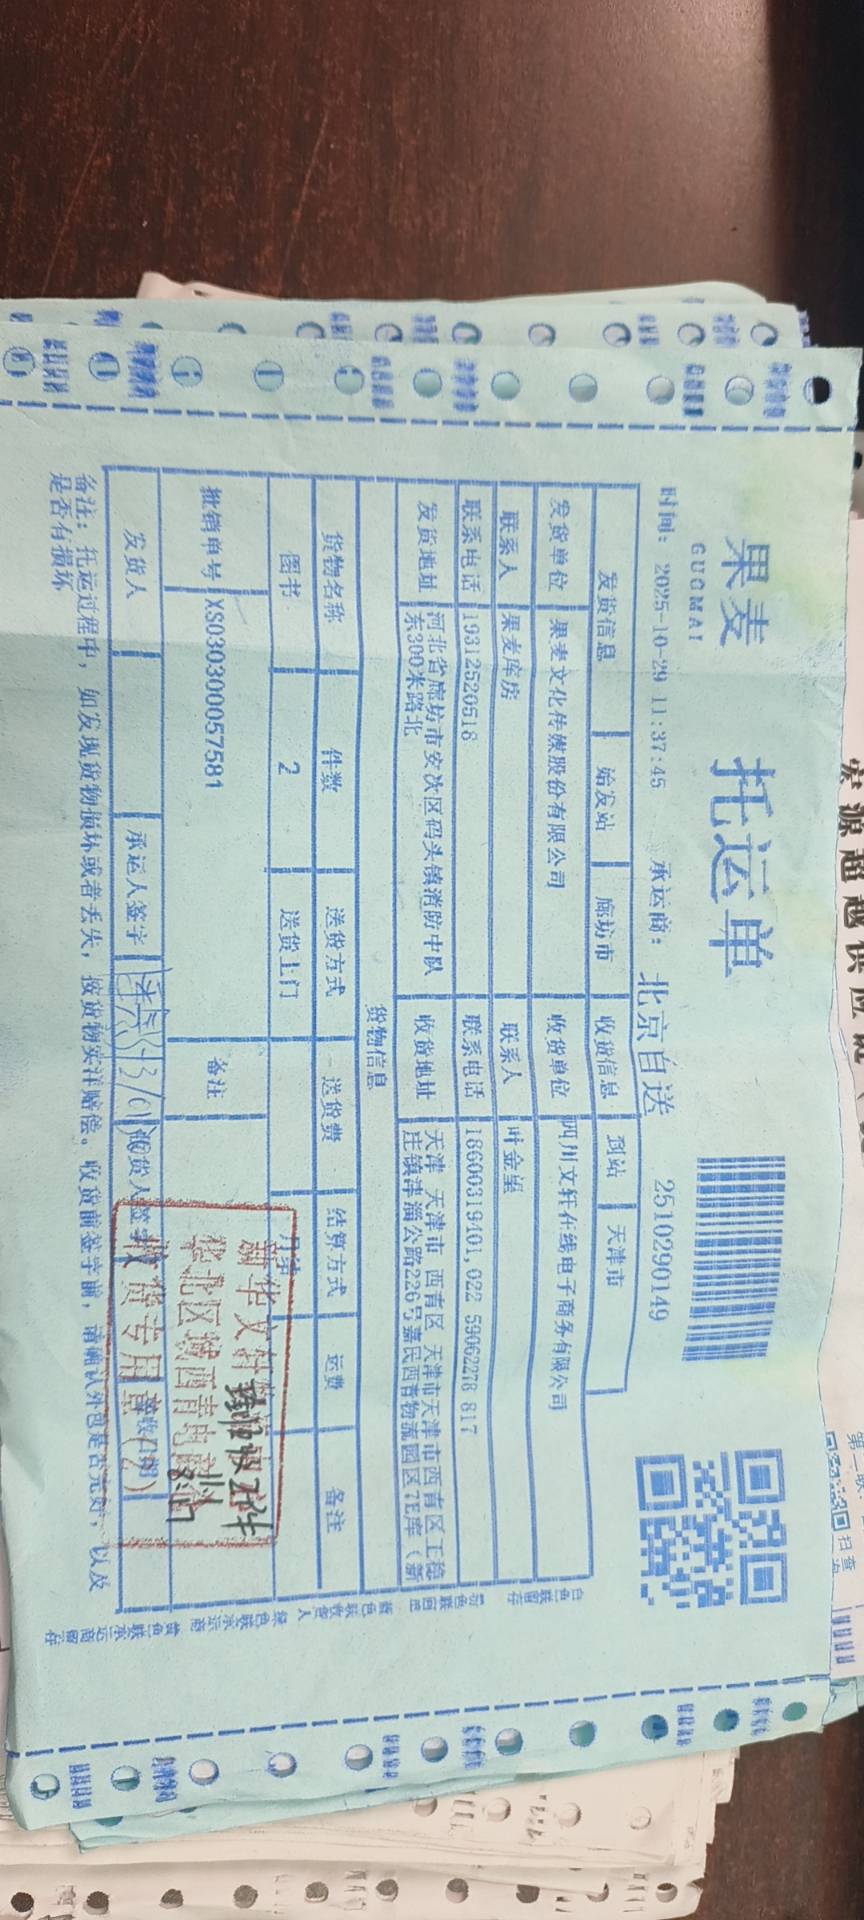 果麦
GUOMAI
托运单
2510290149
时间: 2025-10-29 11:37:45 承运商: 北京自送
发货信息 始发站 廊坊市 收货信息 到站 天津市
发货单位 果麦文化传媒股份有限公司 收货单位 四川文轩在线电子商务有限公司
联系人 果麦库房 联系人 叶金望
联系电话 19312520518 联系电话 18600319401,022 59062278 817
发货地址 河北省廊坊市安次区码头镇消防中队 收货地址 天津 天津市 西青区 天津市天津市西青区王稳
东300米路北 庄镇津淄公路226号嘉民西青物流园区7E库（新
货物信息
货物名称 件数 送货方式 送货费 结算方式 运费 备注
图书 2 送货上门 月结
批销单号 XS030300057581 备注
发货人 承运人签字 收货人签字 签收日期
新华文轩
华北区域西青电商
收货专用章
(2)
实收2件
备注: 托运过程中, 如发现货物损坏或者丢失, 按货物实洋赔偿。收货前签字前, 请确认外包是否完好, 以及
是否有损坏
白色联留存
蓝色联收货人
绿色联承运商
黄色联承运商留存
宏源超越供应链
第一联
扫查